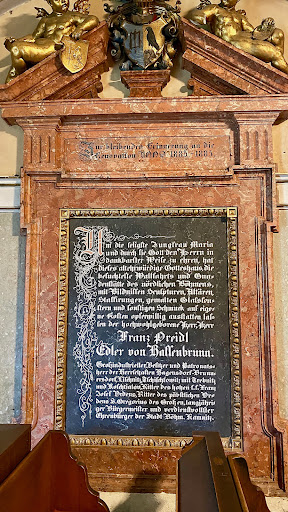 Zur bleibenden Erinnerung an die
Renovation 1885
Um die seligste Jungfrau Maria
und durch sie Gott den Herrn in
dankbarster Weise zu ehren, hat
dieses altehrwürdige Gotteshaus, die
besuchteste Wallfahrts und Gna-
denstätte des nördlichen Böhmens,
mit Bildnissen, Sculpturen, Altären,
Staffirungen, gemalten Glasfen-
stern und sonstigen Schmuck auf eige-
ne Kosten opferwillig ausstatten las-
sen der hochwohlgeborene Herr, Herr
Franz Preidl
Edler von Hassenbrunn.
Großindustrieller, Besitzer und Patronats-
herr der Herrschaften Hagensdorf-Brun-
nersdorf, mit Trebnitz
und Ritter des hohen Franz
Josef Ordens, Ritter des päbstlichen Or-
dens S. Gregorius des Großen, langjähri-
ger Bürgermeister und verdienstvollster
Ehrenbürger der Stadt Böhm. Kamnitz.